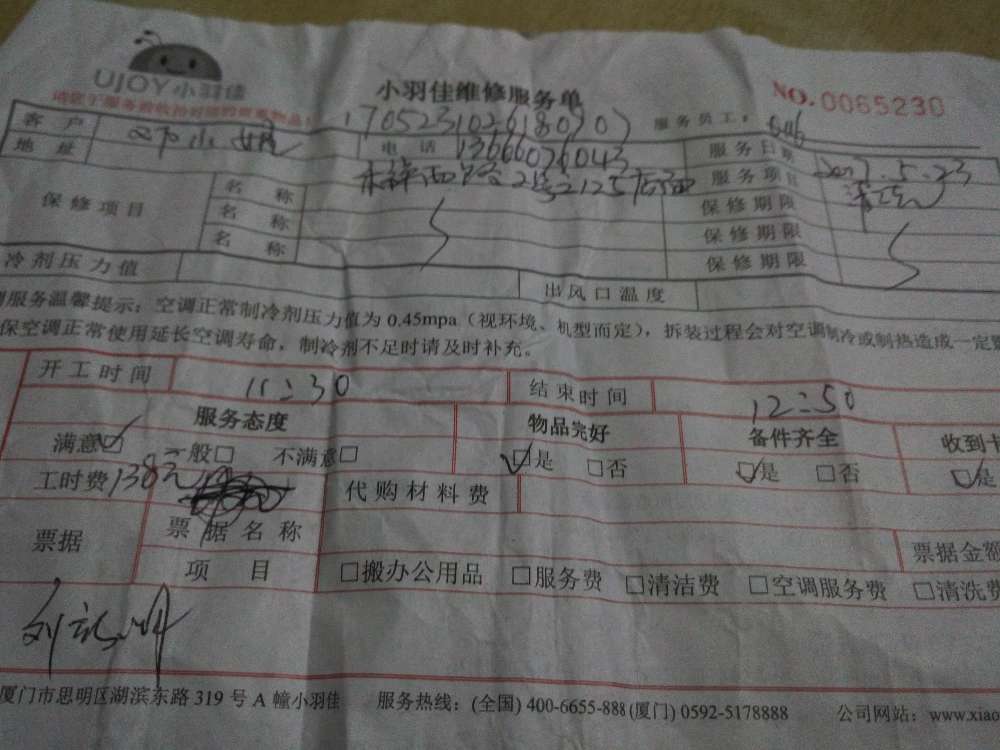 UJOY小羽佳
小羽佳维修服务单
NO.0065230
170523102618090
服务员工:
客户 小姐 电话 13666026043 服务日期 2017.5.23
地址 西路2号2125店面 服务项目
保修项目 名称 保修期限
名称 保修期限
名称 保修期限
冷剂压力值 出风口温度
服务温馨提示:空调正常制冷剂压力值为 0.45mpa(视环境、机型而定),拆装过程会对空调制冷或制热造成一定
保空调正常使用延长空调寿命,制冷剂不足时请及时补充。
开工时间 11:30 结束时间 12:50
服务态度 物品完好 备件齐全 收到卡
满意☑ 一般□ 不满意□ ☑是 □否 ☑是 □否 ☑是
工时费 138元 代购材料费
票据 票据名称 票据金额
项目 □搬办公用品 □服务费 □清洁费 □空调服务费 □清洗费
厦门市思明区湖滨东路 319 号 A 幢小羽佳 服务热线:(全国) 400-6655-888 (厦门) 0592-5178888 公司网站:www.xiao